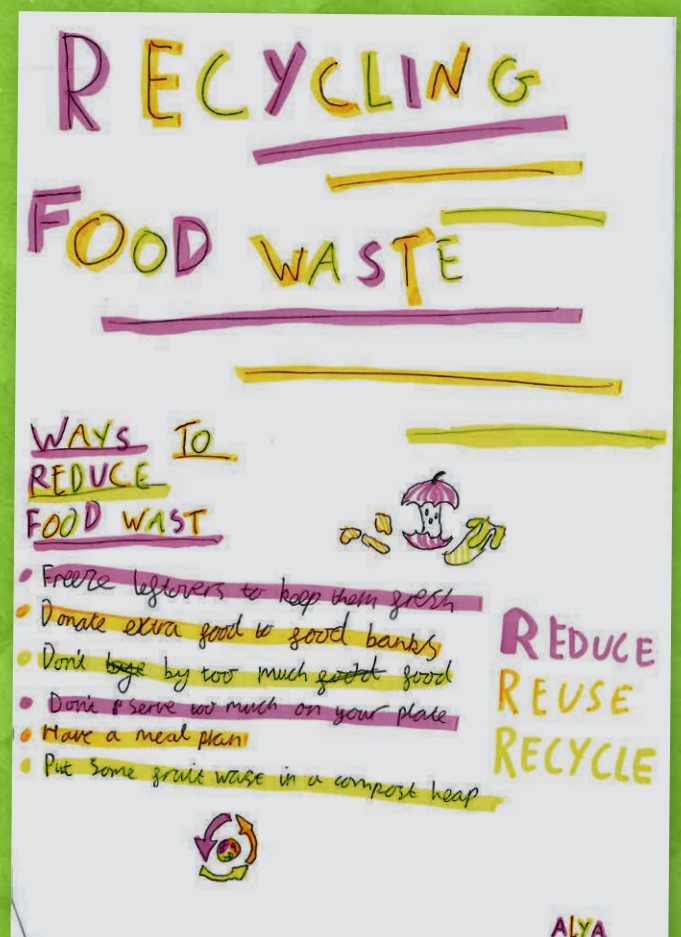 RECYCLING
FOOD WASTE
WAYS TO
REDUCE
FOOD WAST
• Freeze leftovers to keep them fresh
• Donate extra food to food banks
• Don't by too much food
• Don't serve too much on your plate
• Have a meal plan
• Put some fruit wase in a compost heap
REDUCE
REUSE
RECYCLE
ALYA